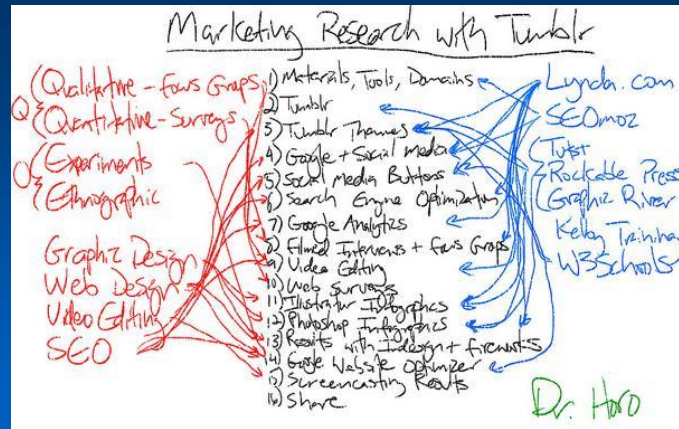 Marketing Research with Tumblr
Q
Qualitative - Focus Groups
Quantitative - Surveys
O
Experiments
Ethnographic
Graphic Design
Web Design
Video Editing
SEO
1) Materials, Tools, Domains
2) Tumblr
3) Tumblr Themes
4) Google + Social Media
5) Social Media Buttons
6) Search Engine Optimization
7) Google Analytics
8) Filmed Interviews + Focus Groups
9) Video Editing
10) Web Surveys
11) Illustrator Infographics
12) Photoshop Infographics
13) Results with Indesign + fireworks
14) Google Website Optimizer
15) Screencasting Results
16) Share
Lynda.com
SEOmoz
Tutst
Rockable Press
Graphic River
Kelby Training
W3Schools
Dr. Horo